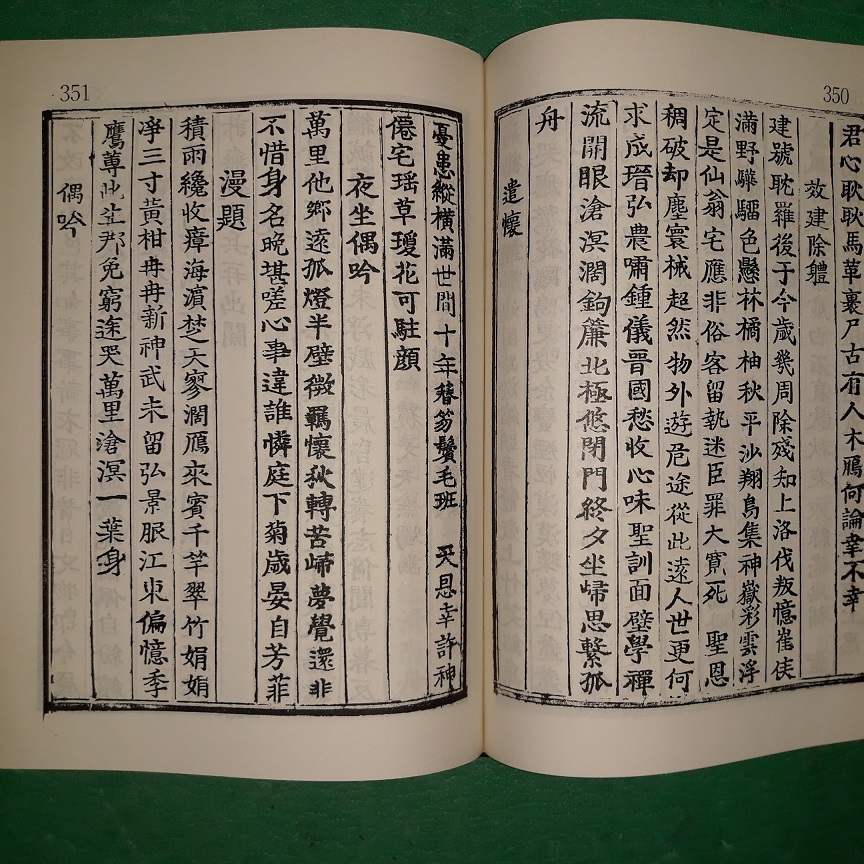 350
君心耿耿馬革裹尸古有人木鴈何論幸不幸
效建除軆
建號耽羅後于今歲幾周除殘知上洛伐叛憶崔侯
滿野驊騮色懸林橘柚秋平沙翔鳥集神嶽彩雲浮
定是仙翁宅應非俗客留執迷臣罪大寬死 聖恩
稠破却塵寰械超然物外遊危途從此遠人世更何
求成瑨弘農嘯鍾儀晉國愁收心味聖訓面壁學禪
流開眼滄溟濶鉤簾北極悠閉門終夕坐歸思繫孤
舟
遣懷
351
憂患縱橫滿世間十年簪笏鬢毛班 天恩幸許神
僊宅瑶草瓊花可駐顔
夜坐偶吟
萬里他鄉遠孤燈半壁微羈懷秋轉苦歸夢覺還非
不惜身名晩堪嗟心事違誰憐庭下菊歲晏自芳菲
漫題
積雨纔收瘴海濵楚天寥濶鴈來賓千竿翠竹娟娟
淨三寸黃柑冉冉新神武未留弘景服江東偏憶季
鷹蓴此並邦免窮途哭萬里滄溟一葉身
偶吟